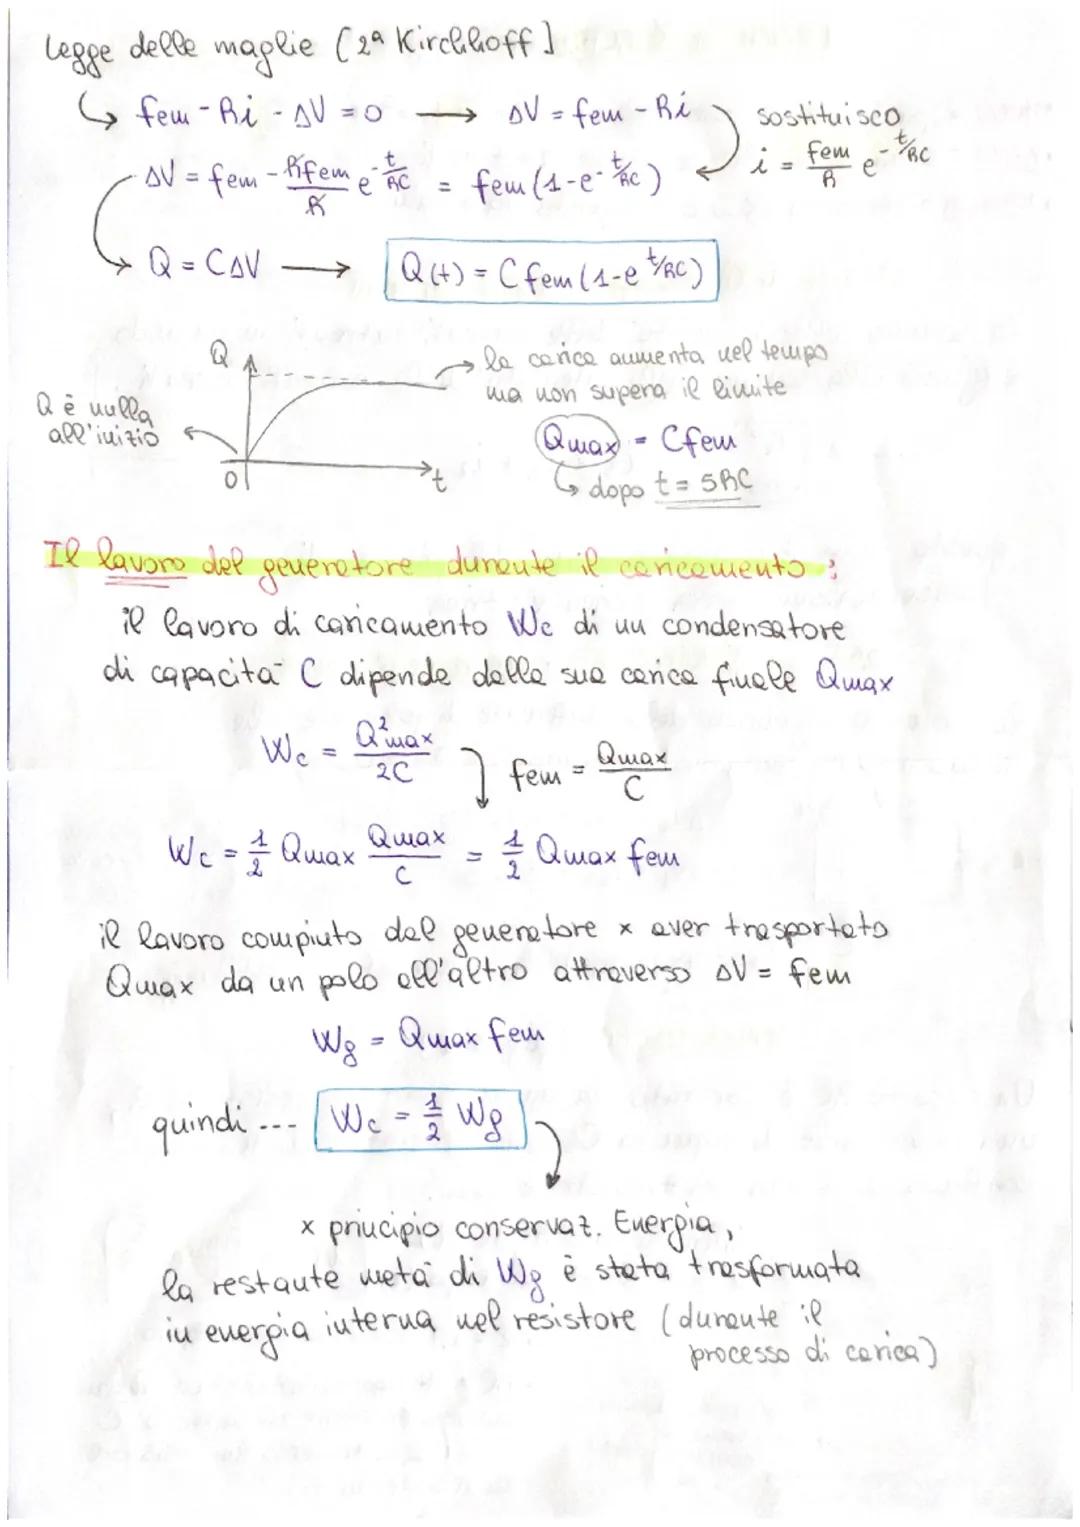 Legge delle maglie (2ª Kirchhoff]
↳ fem - Ri - ΔV = 0 → ΔV = fem - Ri
sostituisco
i = fem/R e^-t/RC
ΔV = fem - Rfem/R e^-t/RC = fem (1-e^-t/RC)
Q = CΔV → Q(t) = C fem (1-e^t/RC)
Q
→ la carica aumenta nel tempo
ma non supera il limite
Q è nulla
all'inizio
Qmax = Cfem
↳ dopo t = 5RC
0
t
Il lavoro del generatore durante il caricamento:
il lavoro di caricamento Wc di un condensatore
di capacità C dipende dalla sua carica finale Qmax
Wc = Q²max/2C
fem = Qmax/C
Wc = 1/2 Qmax Qmax/C = 1/2 Qmax fem
il lavoro compiuto dal generatore x aver trasportato
Qmax da un polo all'altro attraverso ΔV = fem
Wg = Qmax fem
quindi --- Wc = 1/2 Wg
x principio conservaz. Energia,
la restante metà di Wg è stata trasformata
in energia interna nel resistore (durante il
processo di carica)